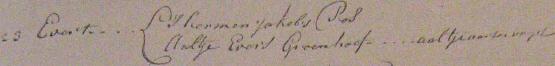 23 Evert .... { Hermen Jakobs Pos
Aaltje Evers Groenhoef .... aaltje